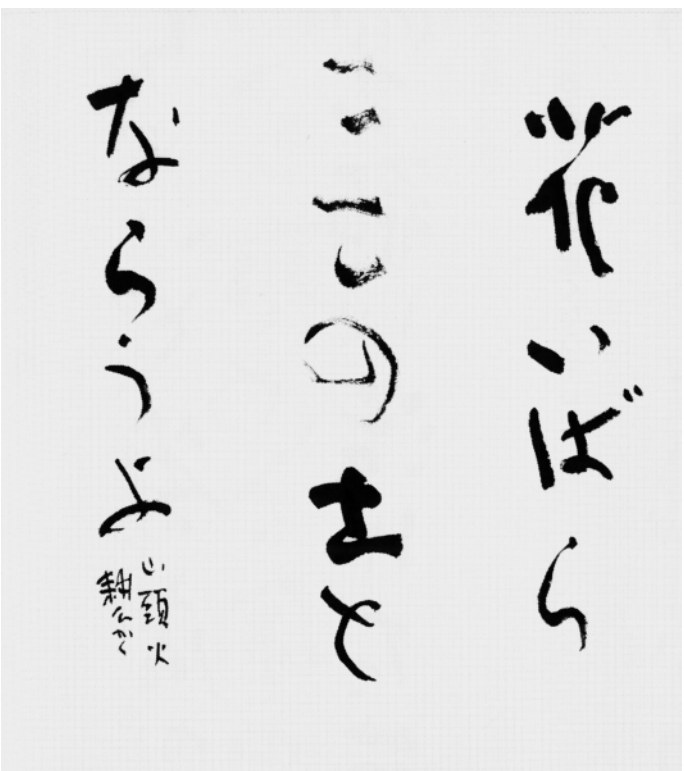 花いばら
ここの土と
ならうよ
山頭火
耕一かく